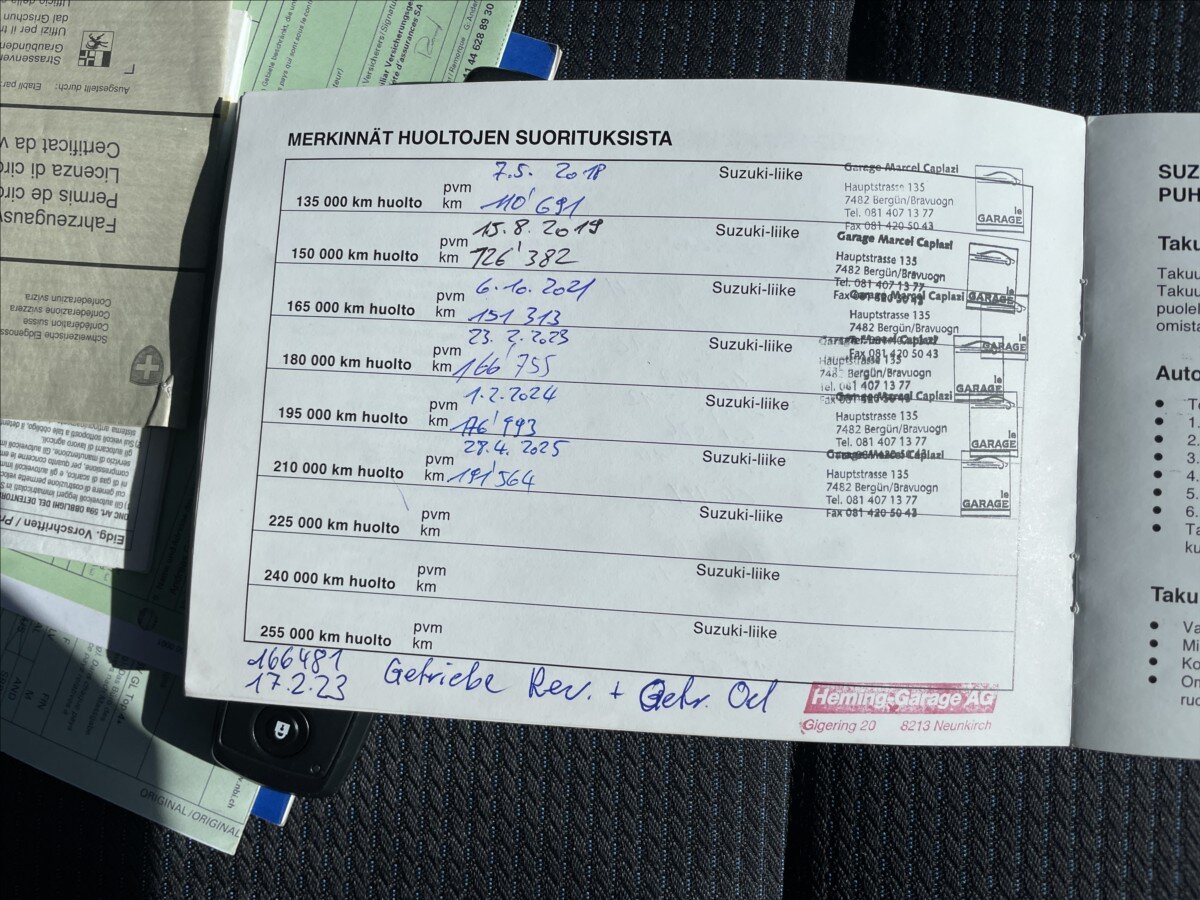 MERKINNÄT HUOLTOJEN SUORITUKSISTA
135 000 km huolto pvm 7.5. 2018 Suzuki-liike
km 110'691
Garage Marcel Caplazi
Hauptstrasse 135
7482 Bergün/Bravuogn
Tel. 081 407 13 77
Fax 081 420 50 43
le GARAGE
150 000 km huolto pvm 15.8.2019 Suzuki-liike
km 126'382
Garage Marcel Caplazi
Hauptstrasse 135
7482 Bergün/Bravuogn
Tel. 081 407 13 77
Fax 081 420 50 43
le GARAGE
165 000 km huolto pvm 6.10.2021 Suzuki-liike
km 151'313
Garage Marcel Caplazi
Hauptstrasse 135
7482 Bergün/Bravuogn
Fax 081 420 50 43
180 000 km huolto pvm 23.2.2023 Suzuki-liike
km 166'755
Hauptstrasse 135
7482 Bergün/Bravuogn
Tel. 081 407 13 77
Fax 081 420 50 43
GARAGE
195 000 km huolto pvm 1.2.2024 Suzuki-liike
km 176'993
Garage Marcel Caplazi
Hauptstrasse 135
7482 Bergün/Bravuogn
Tel. 081 407 13 77
le GARAGE
210 000 km huolto pvm 28.4.2025 Suzuki-liike
km 191'564
Garage Marcel Caplazi
Hauptstrasse 135
7482 Bergün/Bravuogn
Tel. 081 407 13 77
Fax 081 420 50 43
le GARAGE
225 000 km huolto pvm Suzuki-liike
km
240 000 km huolto pvm Suzuki-liike
km
255 000 km huolto pvm Suzuki-liike
km
166481
17.2.23 Getriebe Rev. + Getr. Oel
Heming-Garage AG
Gigering 20 8213 Neunkirch
SUZ
PUH
Taku
Takuu
Takuu
puolel
omista
Auto
1.
2.
3.
4.
5.
6.
Ta
ku
Taku
Va
Mi
Ko
Om
ruo
Ausgestellt durch:
Certificat da v
Licenza di circ
Permis de circ
Fahrzeugausw
Confederaziun svizra
Confederazione svizzera
Confédération suisse
Schweizerische Eidgenoss
Eidg. Vorschriften / Pr
ORIGINAL/ORIGINAL